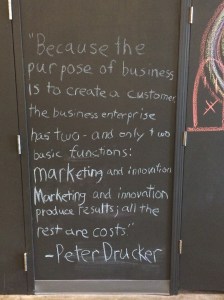 "Because the
purpose of business
is to create a customer
the business enterprise
has two - and only two
basic functions:
marketing and innovation
Marketing and innovation
produce results; all the
rest are costs."
- Peter Drucker